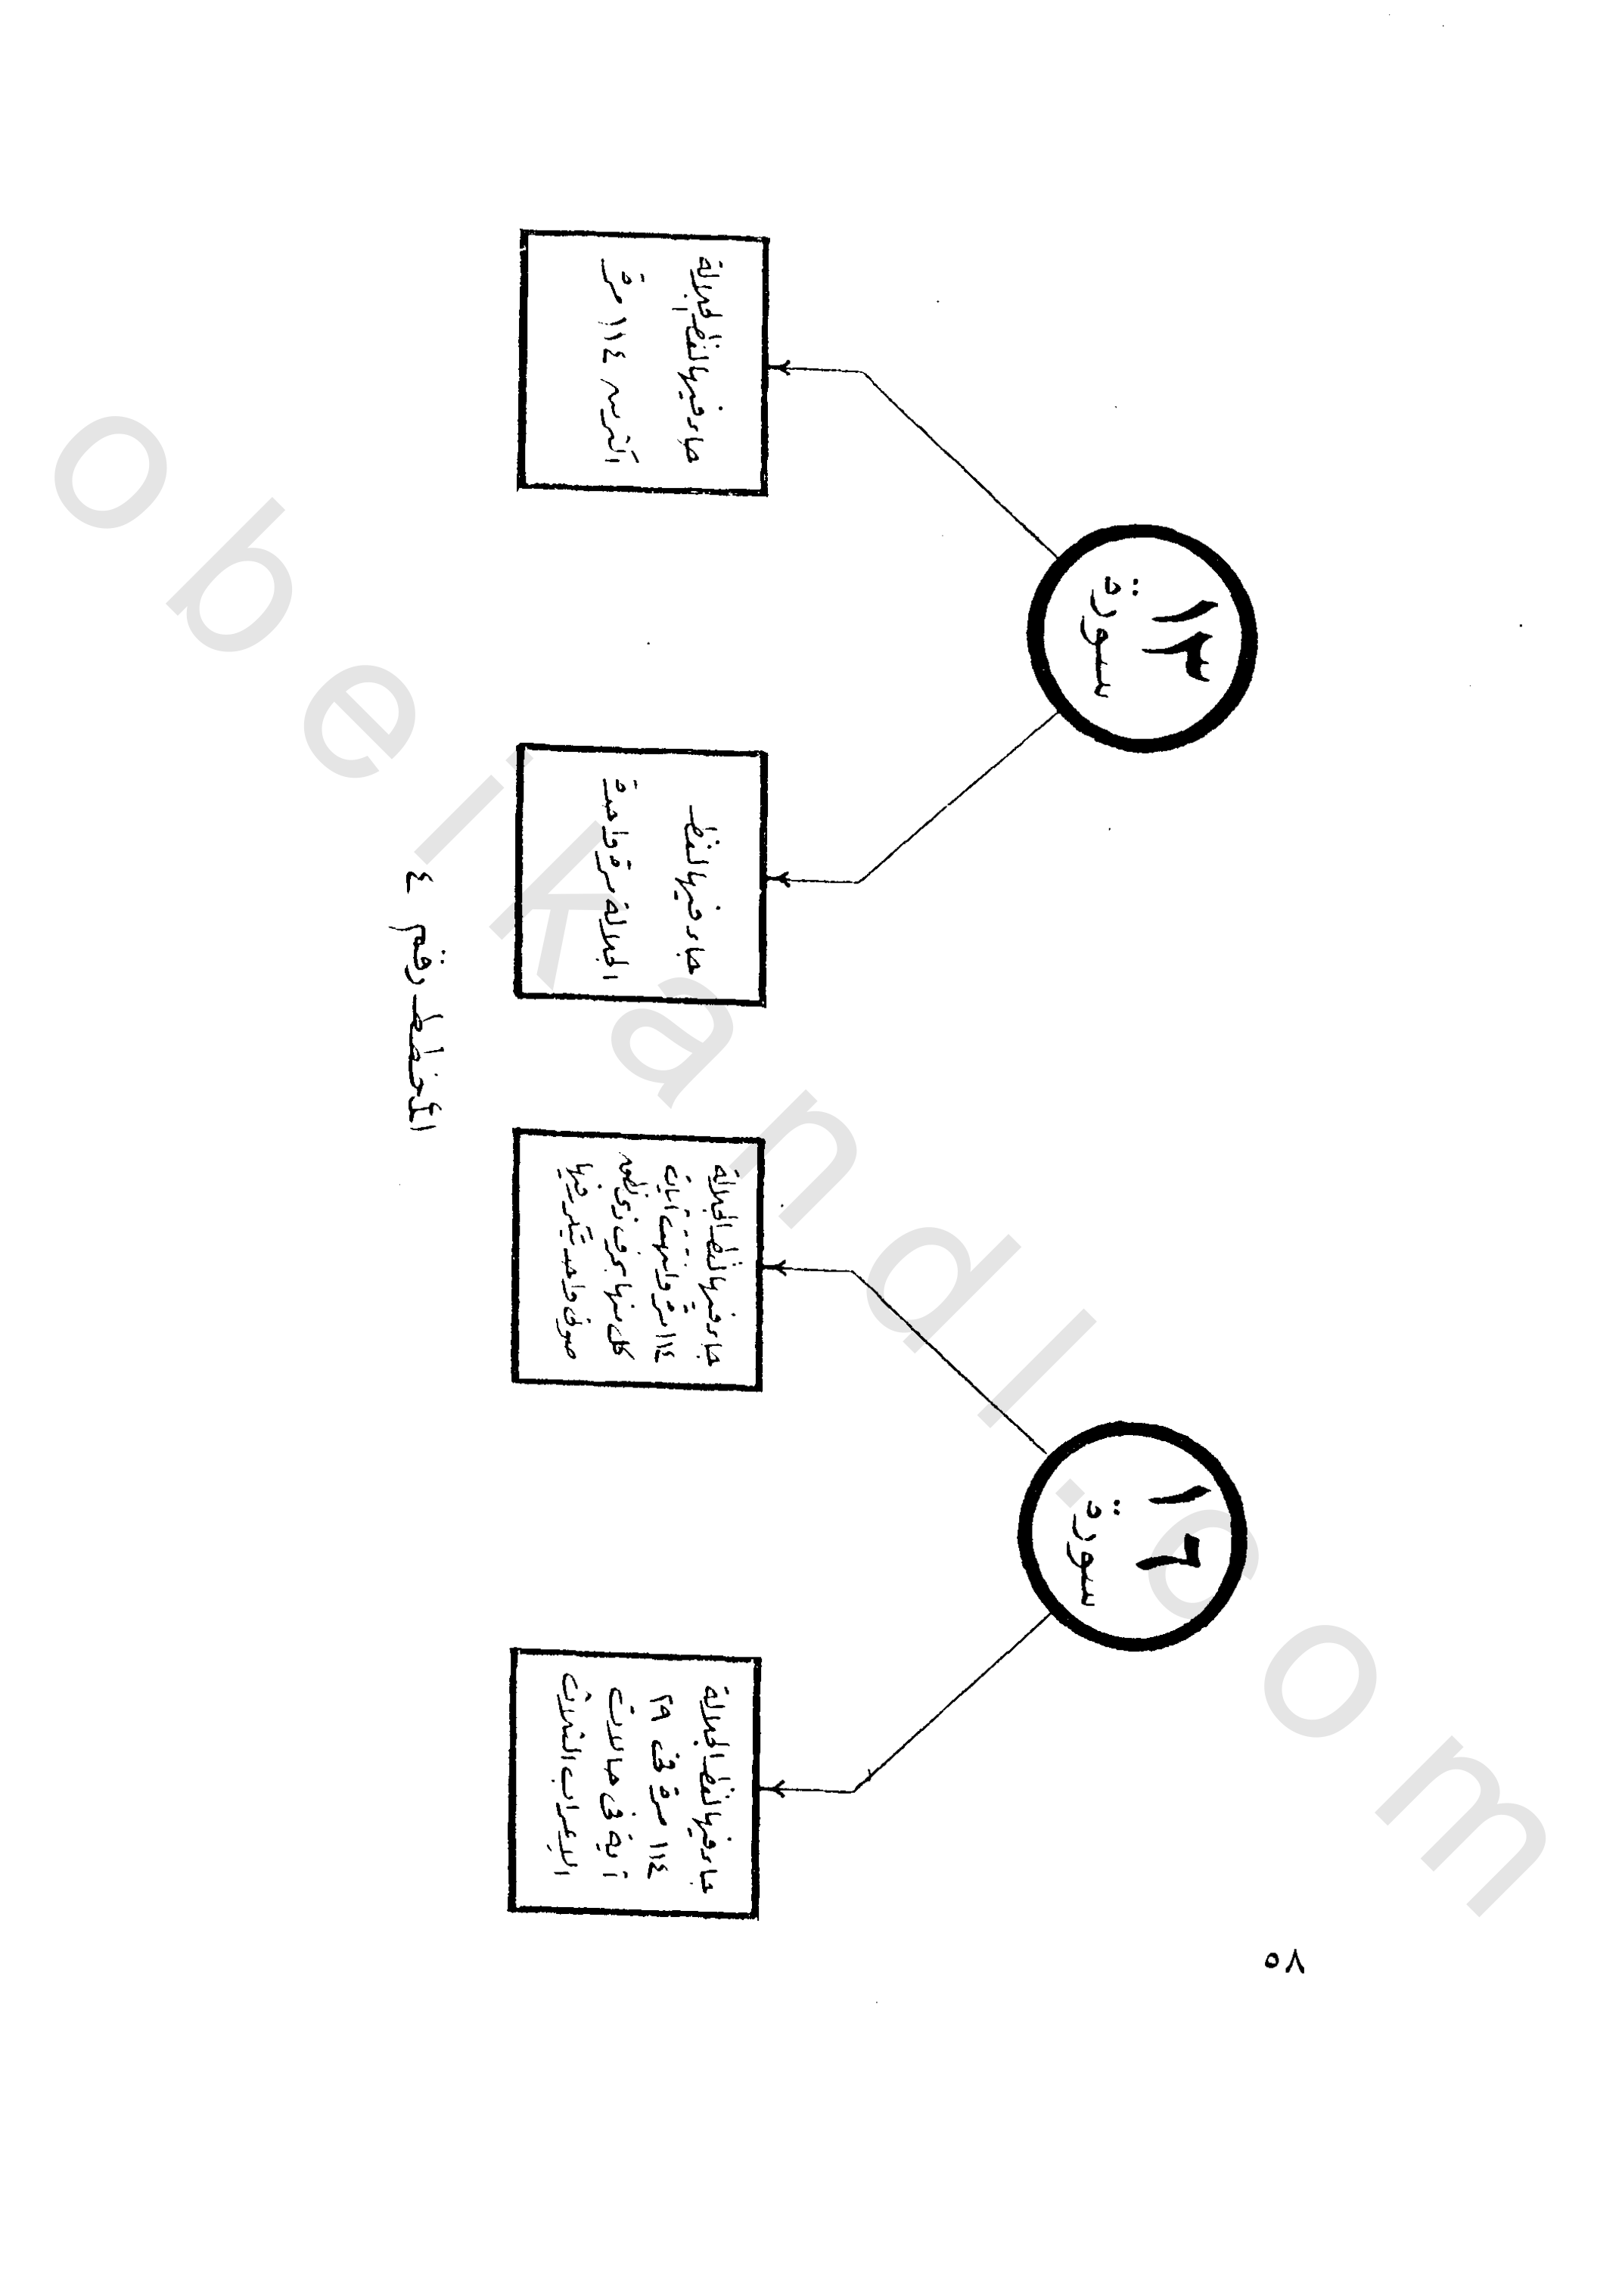 ١٦
سورة
١٣
سورة
جاء فيها لفظ الجلالة
١١٤ مرة فى ٢٩
آية فى حالات
الإعراب الثلاث
جاء فيها لفظ الجلالة
١١٤ مرة وانتهت آيات
كل منها بحرف ذى
واحد يتكرر فيها
جاء فيها لفظ
الجلالة مرة واحدة
جاء فيها لفظ الجلالة
اكثر من ١١٤ مرة
المخطط رقم ٤
٥٨
obeikandl.com